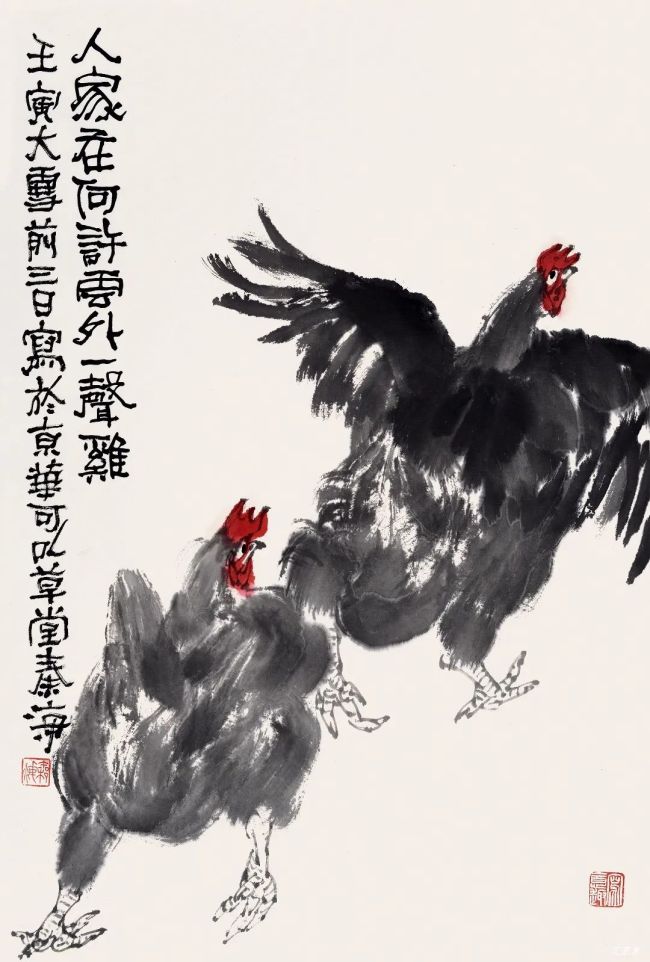 人家在何許雲外一聲雞
壬寅大雪前三日寫於京華可以草堂秦海
秦海